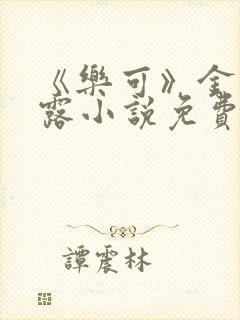 《樂可》金
露小說免費
譚震林